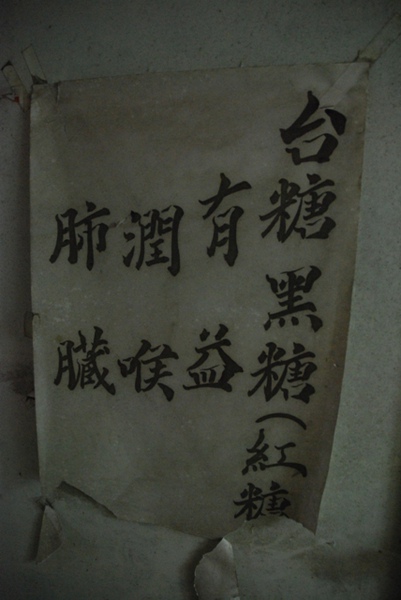 台糖黑糖(紅糖
有益
潤喉
肺臟